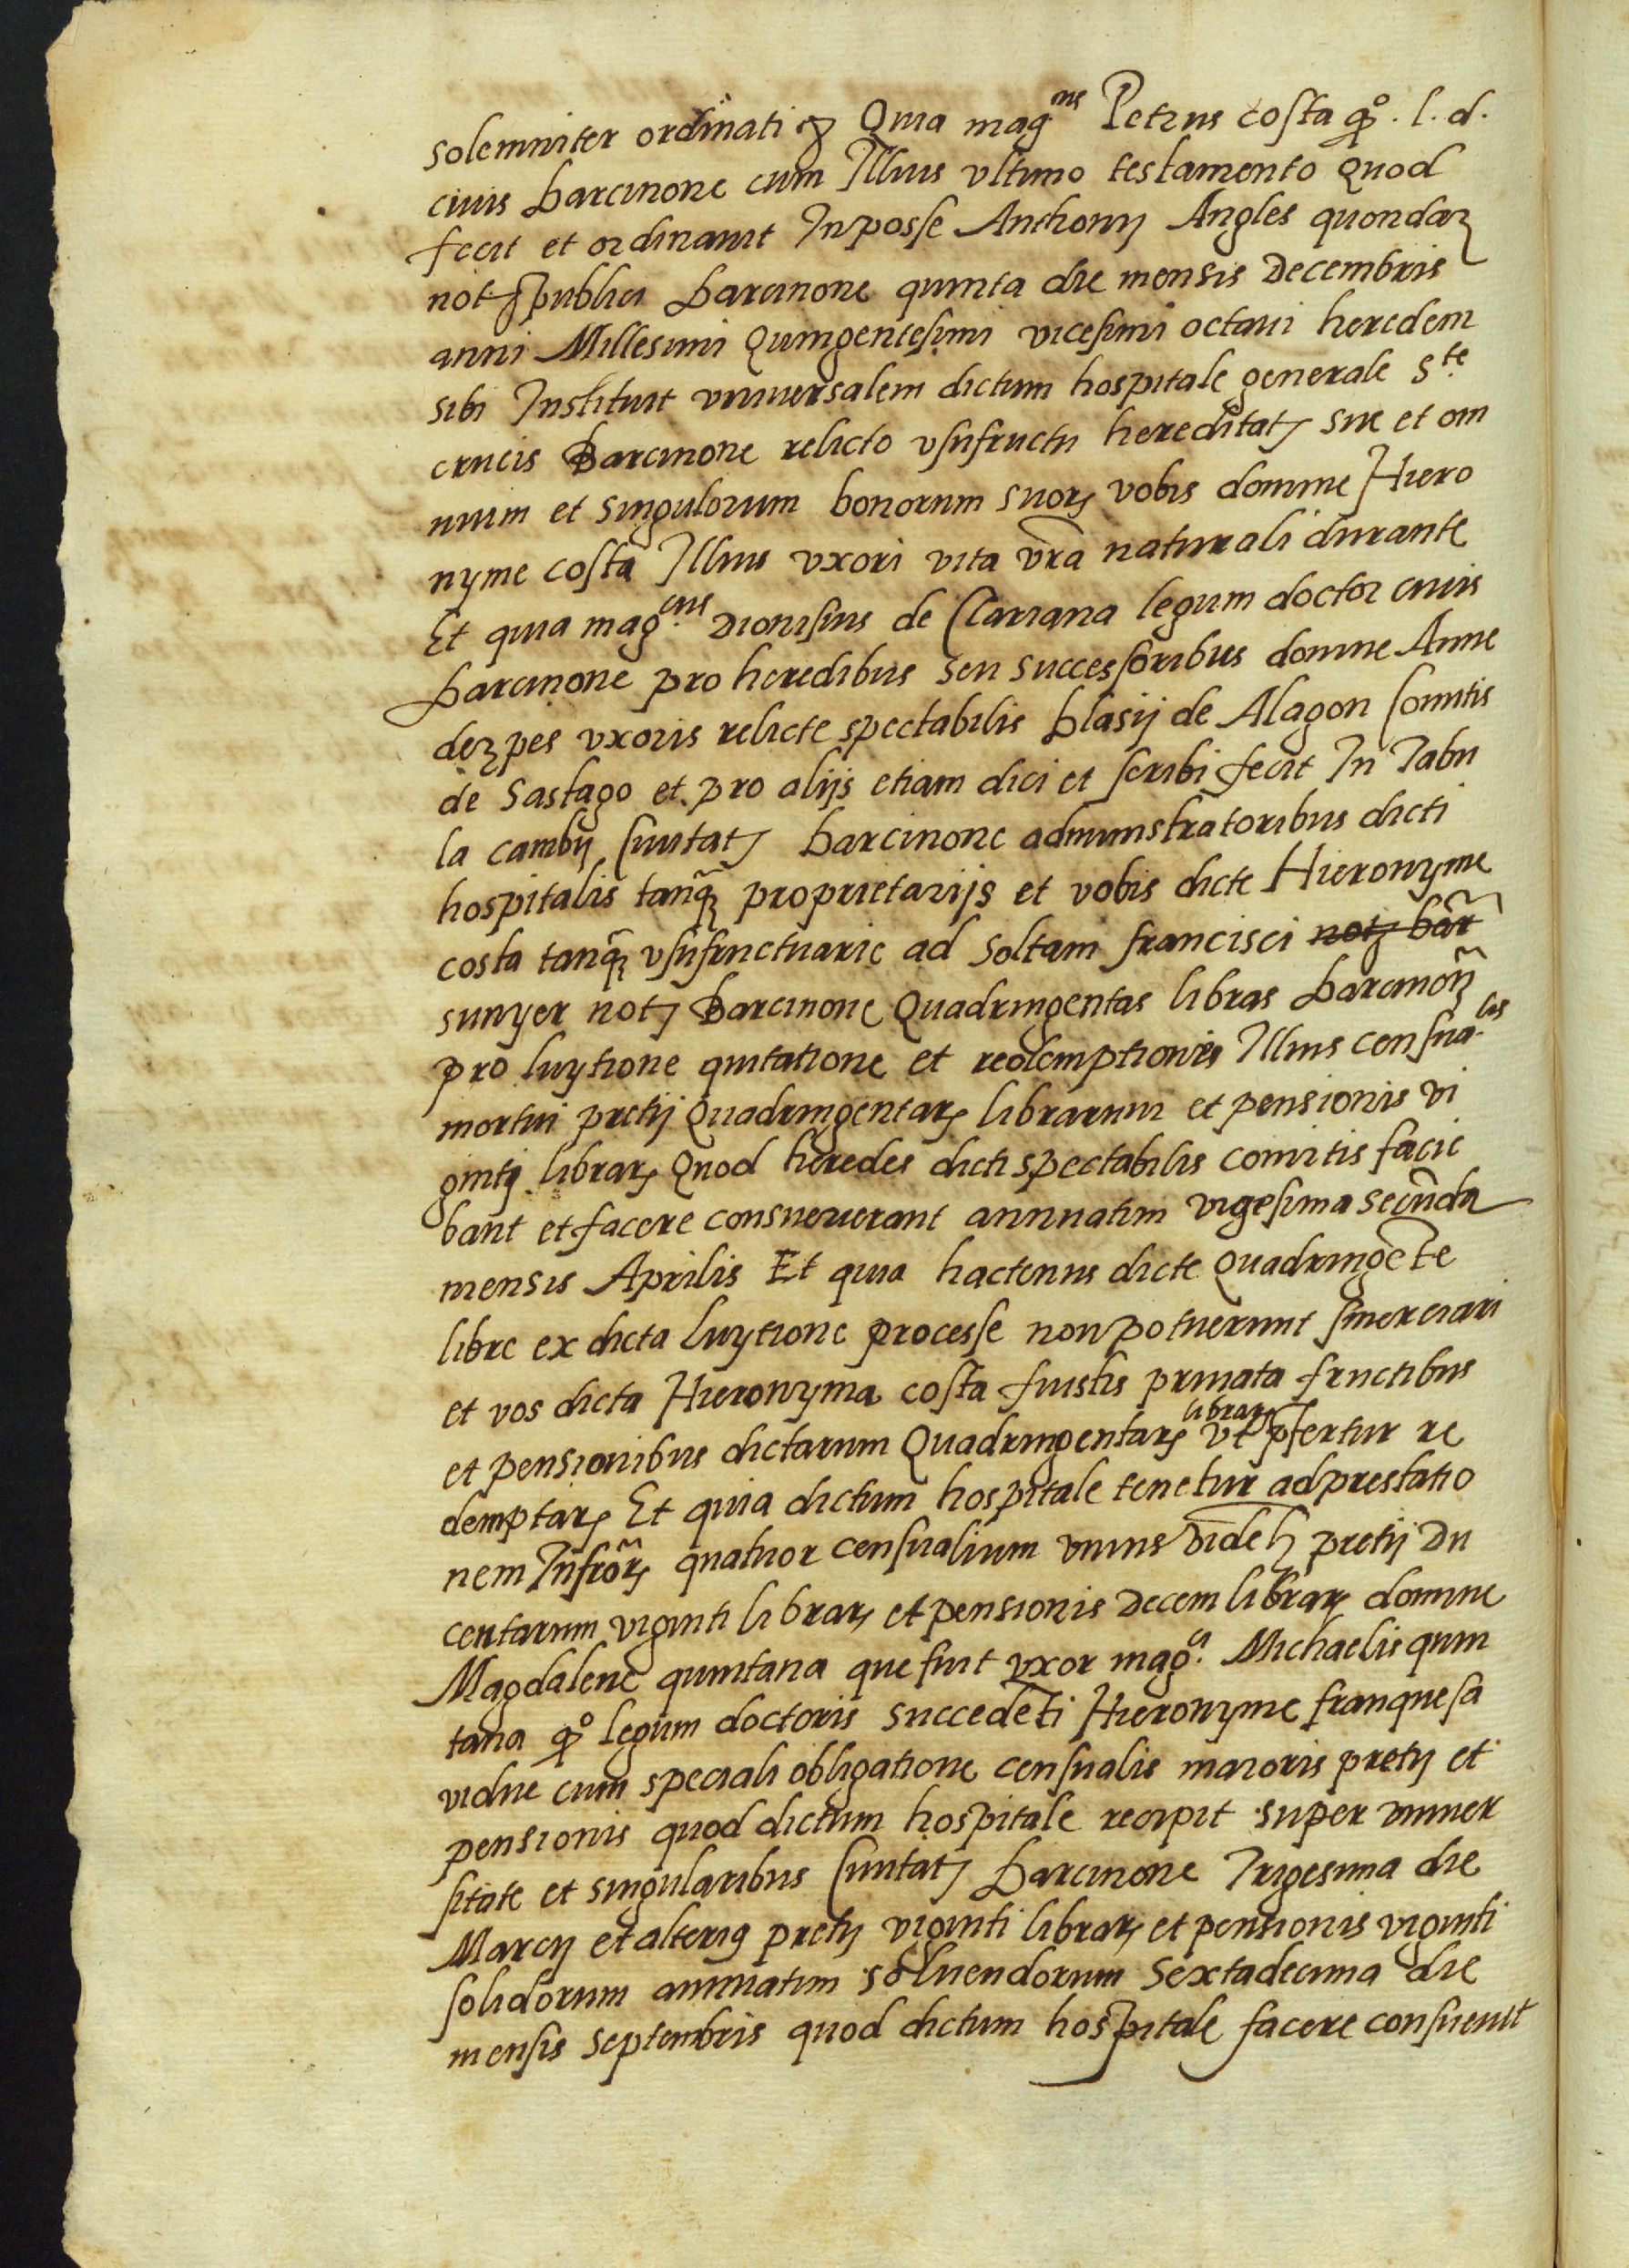 solemniter ordinati Quia mag^us Petrus costa qº. l. d.
ciuis barcinone cum Illius vltimo testamento quod
fecit et ordinauit Inposse Anthonij Angles quondaz
not publici barcinone quinta die mensis Decembris
anni Millesimi quingentesimi vicesimi octaui heredem
sibi Instituit vniuersalem dictum hospitale generale S^te
crucis Barcinone relicto vsufructu hereditat sue et om
nium et singulorum bonorum suor vobis domine Hiero
nyme costa Illius vxori vita vr̃a naturali durante
Et quia mag^cus Dionisius de Clariana legum doctor ciuis
barcinone pro heredibus seu successoribus domine Anne
dezpes vxoris relicte spectabilis blasij de Alagon Comitis
de Sastago et pro alijs etiam dici et scribi fecit In Tabu
la cambij Ciuitat barcinone administratoribus dicti
hospitalis tanq̃ proprietarijs et vobis dicte Hieronyme
costa tanq̃ vsufructuarie ad soltam francisci not bar̃
sunyer not Barcinone Quadringentas libras barcinoñ
pro luytione quitatione et redemptionis Illius censua^lis
mortui pretij Quadringentar librarum et pensionis vi
gintj librar quod heredes dicti spectabilis comitis facie
bant et facere consueuerant annuatim vigesima secũda
mensis Aprilis Et quia hactenus dicte quadringẽte
libre ex dicta luytione processe non potuerunt smerciari
et vos dicta Hieronyma costa fuistis priuata fructibus
et pensionibus dictarum Quadringentar librar vt p̃fertur re
demptar Et quia dictum hospitale tenetur ad prestatio
nem Infrõr quatuor censualium vnius videl pretij Du
centarum viginti librar et pensionis Decem librar domine
Magdalene quintana que fuit vxor mag^ci Michaelis quin
tana qº legum doctoris succedẽti Hieronyme franquesa
vidue cum speciali obligatione censualis maioris pretij et
pensionis quod dictum hospitale recipit super vniuer
sitate et singularibus Ciuitat barcinone Trigesima die
Marcij et alterius pretij viginti librar et pensionis viginti
solidorum annuatim soluendorum sextadecima die
mensis septembris quod dictum hospitale facere consueuit